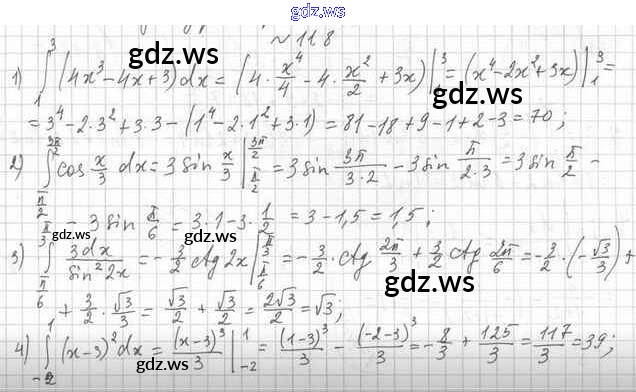 gdz.ws
№ 118
gdz.ws gdz.ws
1) ∫₁³ (4x³ - 4x + 3) dx = (4 · x⁴/4 - 4 · x²/2 + 3x) |₁³ = (x⁴ - 2x² + 3x) |₁³ =
= 3⁴ - 2·3² + 3·3 - (1⁴ - 2·1² + 3·1) = 81 - 18 + 9 - 1 + 2 - 3 = 70;
gdz.ws
2) ∫ cos x/3 dx = 3 sin x/3 | = 3 sin 3π/(3·2) - 3 sin π/(2·3) = 3 sin π/2 -
- 3 sin π/6 = 3·1 - 3·1/2 = 3 - 1,5 = 1,5;
gdz.ws
3) ∫ 3dx/sin²2x = - 3/2 ctg 2x | = - 3/2 · ctg 2π/3 + 3/2 ctg 2π/6 = - 3/2 · (- √3/3) +
gdz.ws
+ 3/2 · √3/3 = √3/2 + √3/2 = 2√3/2 = √3;
gdz.ws
4) ∫₋₂¹ (x-3)² dx = (x-3)³/3 |₋₂¹ = (1-3)³/3 - (-2-3)³/3 = - 8/3 + 125/3 = 117/3 = 39;
gdz.ws
gdz.ws